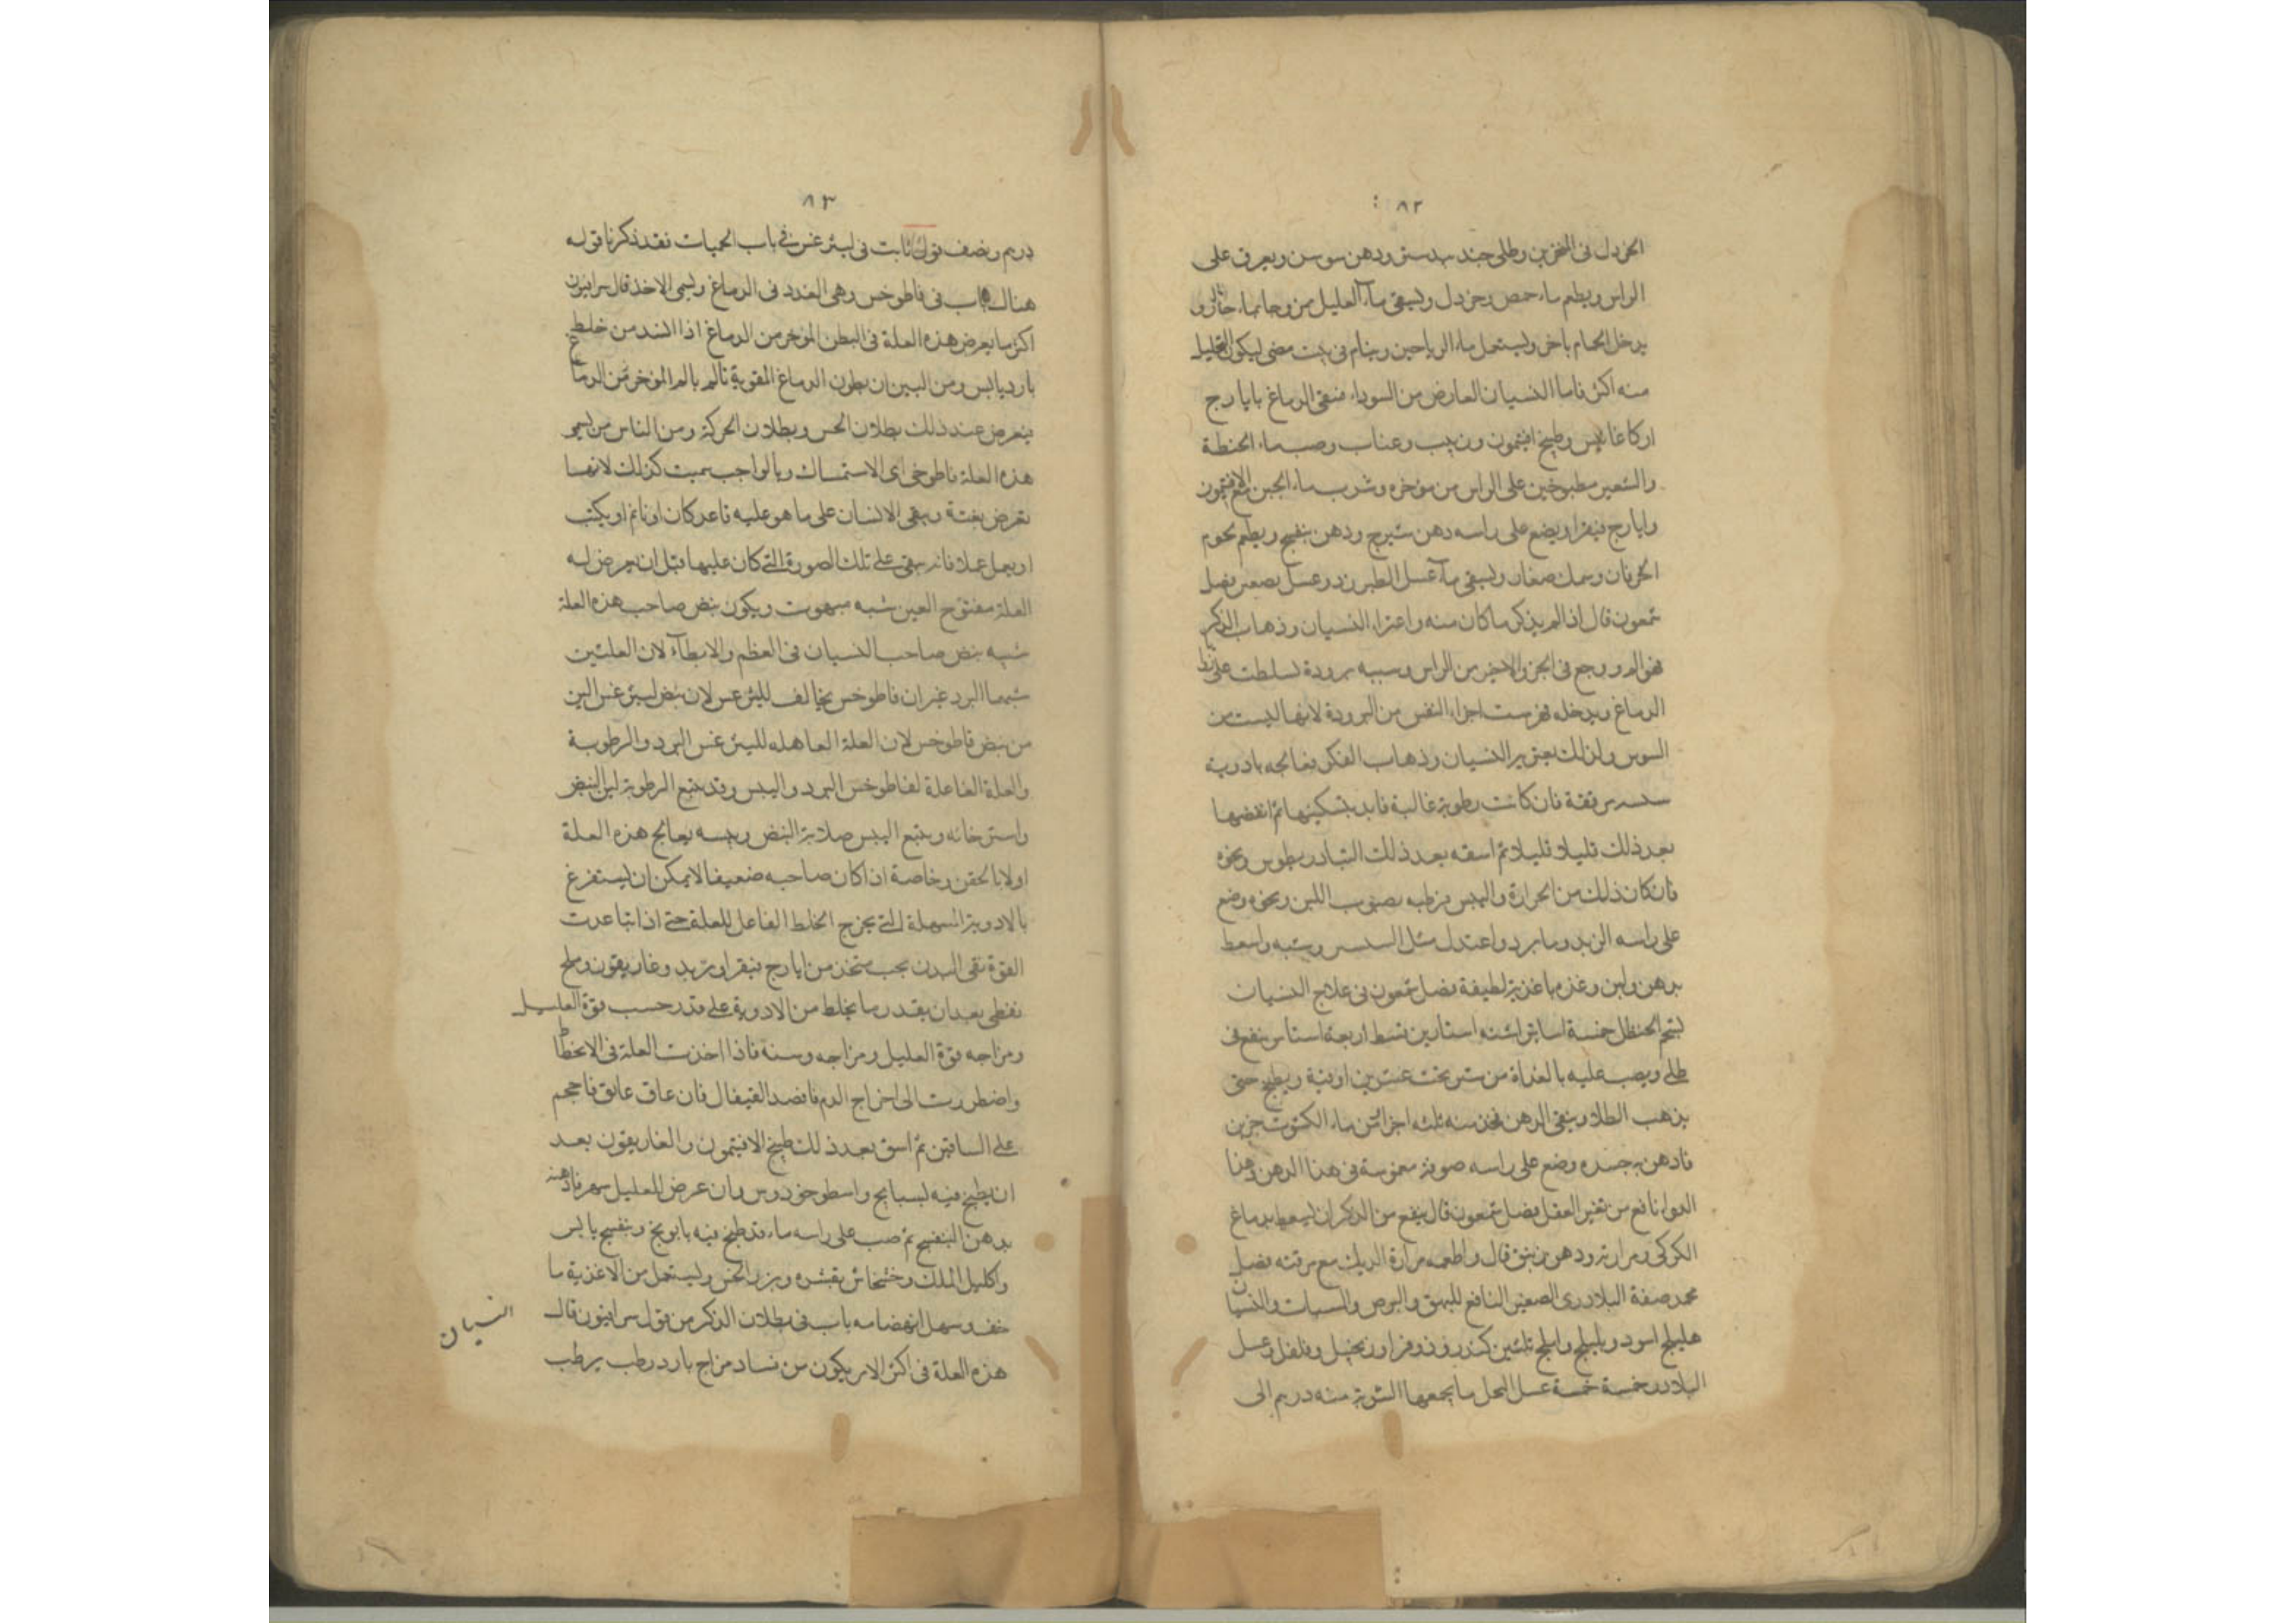 ٨٢
الخردل فى المنخرين وطلى جند بيدستر ودهن سوسن ويعرق على
الراس ويطعم ماء حمص وخردل ويسقى ماء العليل ممزوجا بماء حار و
يدخل الحمام باخر ويستعمل ماء الرياحين وينام فى بيت مضى ليكون التحليل
منه اكثر فاما النسيان العارض من السوداء فنقى الدماغ بايارج
اركاغانيس وطبيخ افيثمون وزبيب وعناب وصب ماء الحنطة
والشعير مطبوخين على الراس من مؤخره وشرب ماء الجبن مع الافتيمون
وايارج فيقرا ويضع على راسه دهن شيرج ودهن بنفسج ويطعم لحوم
الخرفان وسمك صغار ويسقى ماء عسل الطبرزد وعسل بصعتر فصل
شمعون قال اذا لم يذكر ما كان منه واعتراه النسيان وذهاب الذكر
فهو الم ووجع فى الجزو الاخير من الراس وسببه برودة تسلطت على
الدماغ ويدخله فرست اجزاء النفس من البرودة لانها ليست من
السوس ولذلك يعتريه النسيان وذهاب الفكر فعالجه بادوية
مرققة فان كانت رطوبة غالبة فابد بتسكينها ثم انفضها
بعد ذلك قليلا قليلا ثم اسقه بعد ذلك الثيادريطوس ونحوه
فان كان ذلك من الحرارة واليبس فرطبه بصبوب اللبن ونحوه وضع
على راسه الزبد وما برد واعتدل مثل وشبه واسعط
بدهن ولبن وغذه باغذية لطيفة فصل شمعون فى علاج النسيان
لشحم الحنظل خمسة اساتير اشنه استارين قسط اربعة استاس ينقع فى
طلى ويصب عليه بالغداة من شيرج عشرين اوقية ويطبخ حتى
يذهب الطلا ويبقى الدهن فخذ منه ثلثه اجزا من ماء الكشوت جزين
فادهن به جسده وضع على راسه صوفة مغموسة فى هذا الدهن وهذا
الدوا نافع من تغير العقل فصل شمعون قال ينفع من الذكر ان يسعط بدماغ
الكركى ومرارته ودهن زنبق قال واطعمه مرارة الديك مع مرقته فصل
محمد صفة البلادرى الصغير النافع للبهق والبرص والسبات والنسيان
هليلج اسود وبليلج واملج ثلثين كندر وفرفر وزنجبيل وفلفل وعسل
البلادر خمسة خمسة عسل النحل ما يجمعها الشربة منه درهم الى
٨٣
درهم ونصف قول ثابت فى ليثرغس فى باب الحميات فقد ذكرنا قوله
هناك باب فى قاطوخس وهى الغدد فى الدماغ ويسمى الاخذ قال سرابيون
اكثر ما يعرض هذه العلة فى البطن المؤخر من الدماغ اذا انسد من خلط
بارد يابس ومن البين ان بطون الدماغ المقوية تالم بالم المؤخر من الدماغ
فيعرض عند ذلك بطلان الحس وبطلان الحركة ومن الناس من يسمى
هذه العلة قاطوخى اى الاستمساك وبالواجب سميت كذلك لانها
تعرض بغتة ويبقى الانسان على ما هو عليه قاعد كان او نائم او يكتب
او يعمل عملا فانه يبقى على تلك الصورة التى كان عليها قبل ان يعرض له
العلة مفتوح العين شبه مبهوت ويكون نبض صاحب هذه العلة
شبيه بنبض صاحب النسيان فى العظم والابطاء لان العلتين
سببهما البرد غير ان قاطوخس يخالف لليثرغس لان نبض ليثرغس الين
من نبض قاطوخس لان العلة الفاعله لليثرغس البرد والرطوبة
والعلة الفاعلة لقاطوخس البرد واليبس وقد يتبع الرطوبة لين النبض
واسترخائه ويتبع اليبس صلابة النبض ويبسه يعالج هذه العلة
اولا بالحقن وخاصة اذا كان صاحبه ضعيفا لا يمكن ان يستفرغ
بالادوية المسهلة التى يخرج الخلط الفاعل للعلة حتى اذا تباعدت
القوة نقى البدن بحب متخذ من ايارج فيقرا وتربد وغاريقون وملح
نفطى بعد ان يقدر ما يخلط من الادوية على قدر حسب قوة العليل
ومزاجه قوة العليل ومزاجه وسنة فاذا اخذت العلة فى الانحطاط
واضطررت الى اخراج الدم فافصد القيفال فان عاق عايق فاحجم
على الساقين ثم اسق بعد ذلك طبيخ الافيثمون والغاريقون بعد
ان يطبخ فيه بسبايج واسطوخودوس وان عرض للعليل سهر فادهنه
بدهن البنفسج ثم صب على راسه ماء قد طبخ فيه بابونج وبنفسج يابس
واكليل الملك وخشخاش بقشره وبزر الخس ويستعمل من الاغذية ما
خف وسهل انهضامه باب فى بطلان الذكر من قول سرابيون قال
هذه العلة فى اكثر الامر يكون من فساد مزاج بارد رطب يرطب
النسيان